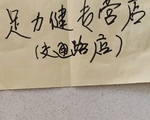 足力健专营店
(交通路店)